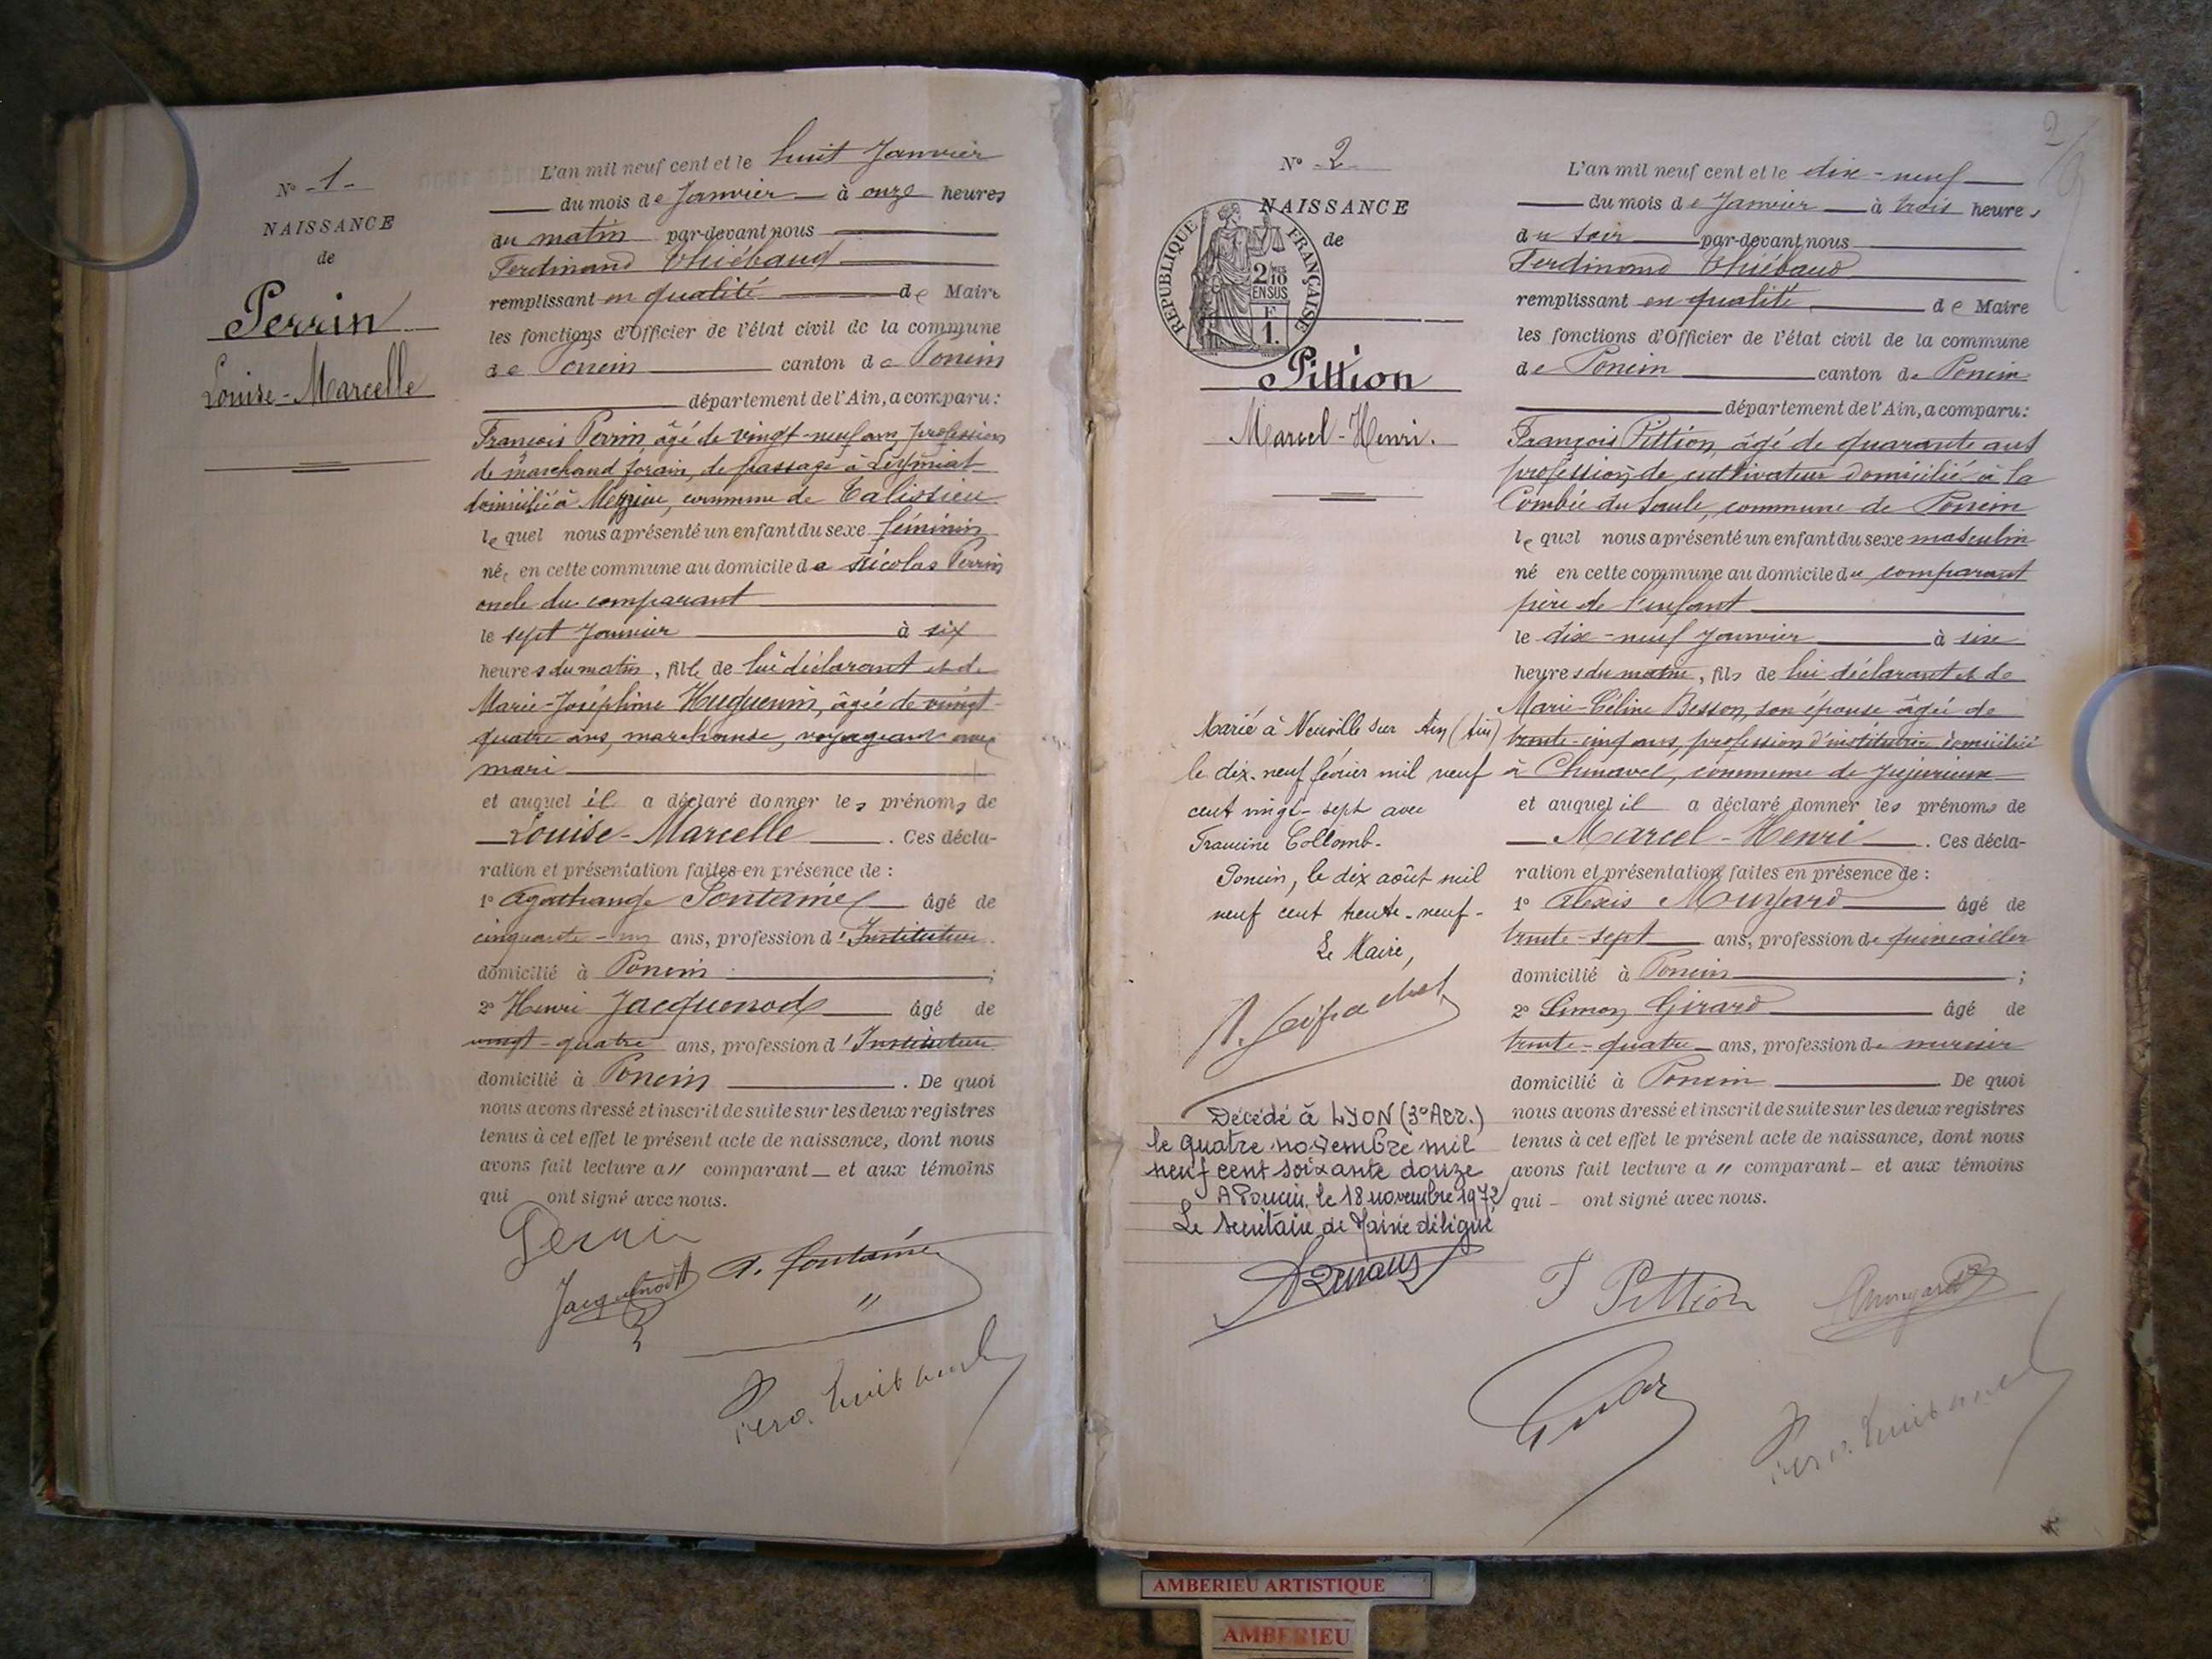 N° -1-
NAISSANCE
de
Perrin
Louise-Marcelle
L'an mil neuf cent et le huit Janvier
du mois de Janvier à onze heures
du matin par-devant nous
Ferdinand Thiébaud
remplissant en qualité de Maire
les fonctions d'Officier de l'état civil de la commune
de Poncin canton de Poncin
département de l'Ain, a comparu :
François Perrin, âgé de vingt-neuf ans, profession
de marchand forain, de passage à Leymiat
domicilié à Mézieu, commune de Talissieu
le quel nous a présenté un enfant du sexe féminin
née en cette commune au domicile de Nicolas Perrin
oncle du comparant
le sept Janvier à six
heures du matin, fille de lui déclarant et de
Marie-Joséphine Huguenin, âgée de vingt-
quatre ans, marchande, voyageant avec
mari
et auquel il a déclaré donner les prénoms de
Louise-Marcelle. Ces décla-
ration et présentation faites en présence de :
1° Agathange Fontaine âgé de
cinquante-un ans, profession d'Instituteur
domicilié à Poncin ;
2° Henri Jacquenod âgé de
vingt-quatre ans, profession d'Instituteur
domicilié à Poncin. De quoi
nous avons dressé et inscrit de suite sur les deux registres
tenus à cet effet le présent acte de naissance, dont nous
avons fait lecture a" comparant et aux témoins
qui ont signé avec nous.
Perrin
Jacquenod A. Fontaine
Ferd. Thiébaud
2
N° 2
NAISSANCE
de
RÉPUBLIQUE FRANÇAISE
2/10 MES
EN SUS
F
1.
Pittion
Marcel-Henri.
Marié à Neuville sur Ain (Ain)
le dix-neuf février mil neuf
cent vingt-sept avec
Francine Collomb.
Poncin, le dix août mil
neuf cent trente-neuf-
Le Maire,
Décédé à LYON (3° Arr.)
le quatre novembre mil
neuf cent soixante douze
A Poncin, le 18 novembre 1972
Le Secrétaire de Mairie délégué
L'an mil neuf cent et le dix-neuf
du mois de Janvier à trois heures
du soir par-devant nous
Ferdinand Thiébaud
remplissant en qualité de Maire
les fonctions d'Officier de l'état civil de la commune
de Poncin canton de Poncin
département de l'Ain, a comparu :
François Pittion, âgé de quarante ans
profession de cultivateur domicilié à la
Combe du Saule, commune de Poncin
le quel nous a présenté un enfant du sexe masculin
né en cette commune au domicile du comparant
père de l'enfant
le dix-neuf Janvier à six
heures du matin, fils de lui déclarant et de
Marie-Céline Besson, son épouse âgée de
trente-cinq ans, profession d'institutrice domiciliée
à Chenavel, commune de Jujurieux
et auquel il a déclaré donner les prénoms de
Marcel-Henri. Ces décla-
ration et présentation faites en présence de :
1° Alexis Mugard âgé de
trente-sept ans, profession de quincailler
domicilié à Poncin ;
2° Simon Girard âgé de
trente-quatre ans, profession de
domicilié à Poncin De quoi
nous avons dressé et inscrit de suite sur les deux registres
tenus à cet effet le présent acte de naissance, dont nous
avons fait lecture a" comparant et aux témoins
qui ont signé avec nous.
F Pittion
Ferd. Thiébaud
AMBERIEU ARTISTIQUE
AMBERIEU